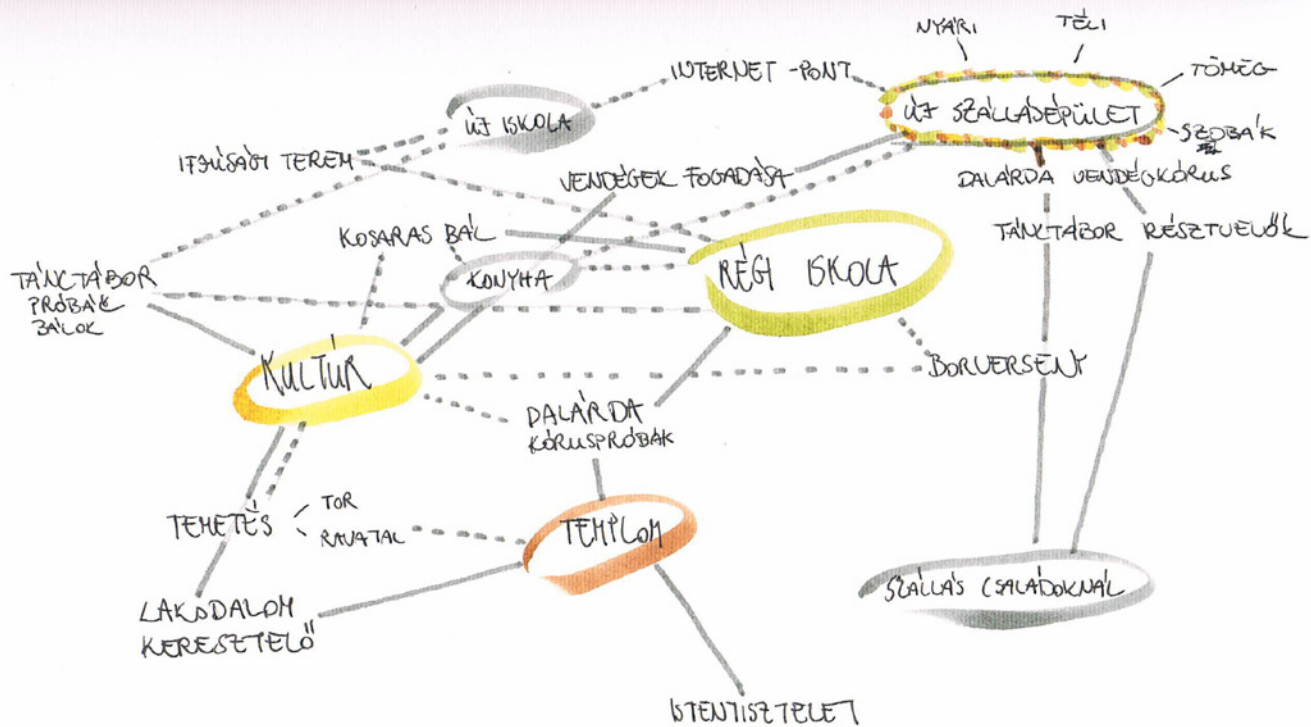 NYÁRI
TÉLI
INTERNET-PONT
TÖMEG
ÚJ SZÁLLÁSÉPÜLET
ÚJ ISKOLA
SZOBÁK
IFJÚSÁGI TEREM
VENDÉGEK FOGADÁSA
DALÁRDA VENDÉGKÓRUS
KOSARAS BÁL
TÁNCTÁBOR RÉSZTVEVŐK
TÁNCTÁBOR
PRÓBÁK
BÁLOK
KONYHA
RÉGI ISKOLA
KULTÚR
BORVERSENY
DALÁRDA
KÓRUSPRÓBÁK
TEMETÉS
TOR
RAVATAL
TEMPLOM
SZÁLLÁS CSALÁDOKNÁL
LAKODALOM
KERESZTELŐ
ISTENTISZTELET